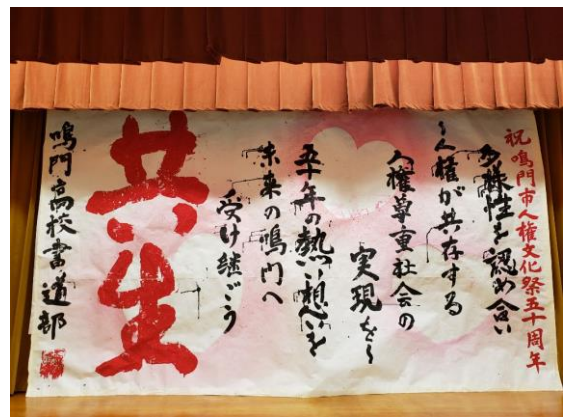 祝鳴門市人権文化祭五十周年
多様性を認め合い
〜人権が共存する
人権尊重社会の
実現を〜
五十年の熱い想いを
未来の鳴門へ
受け継ごう
共生
鳴門高校書道部